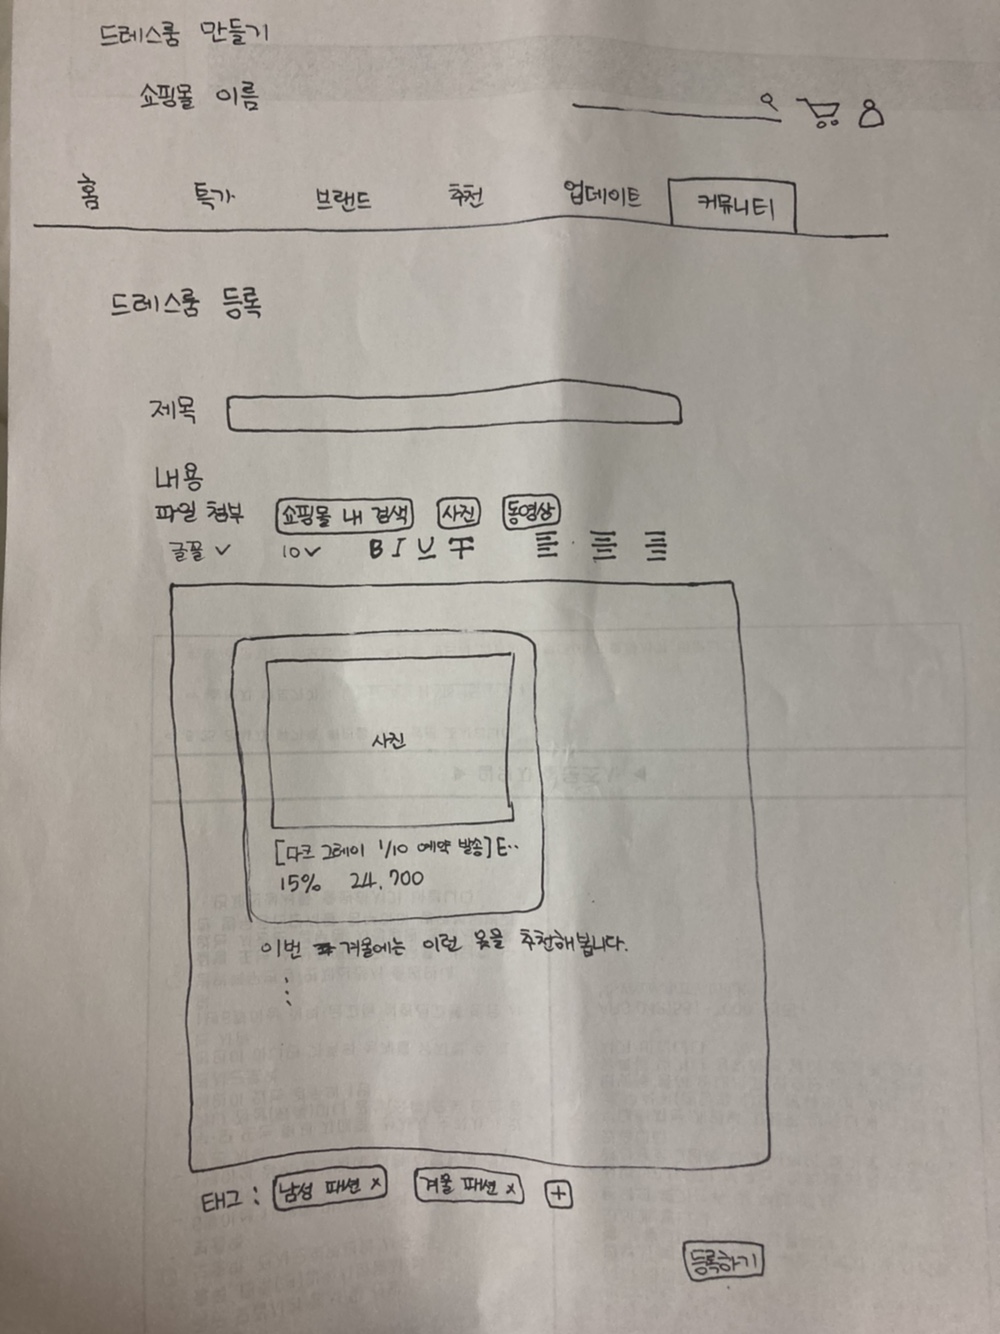 드레스룸 만들기
쇼핑몰 이름
홈 특가 브랜드 추천 업데이트 커뮤니티
드레스룸 등록
제목
내용
파일 첨부 쇼핑몰 내 검색 사진 동영상
글꼴 10 B I U T
사진
[다크 그레이 1/10 예약 발송] E..
15% 24,700
이번 겨울에는 이런 옷을 추천해봅니다.
태그 : 남성 패션 x 겨울 패션 x +
등록하기